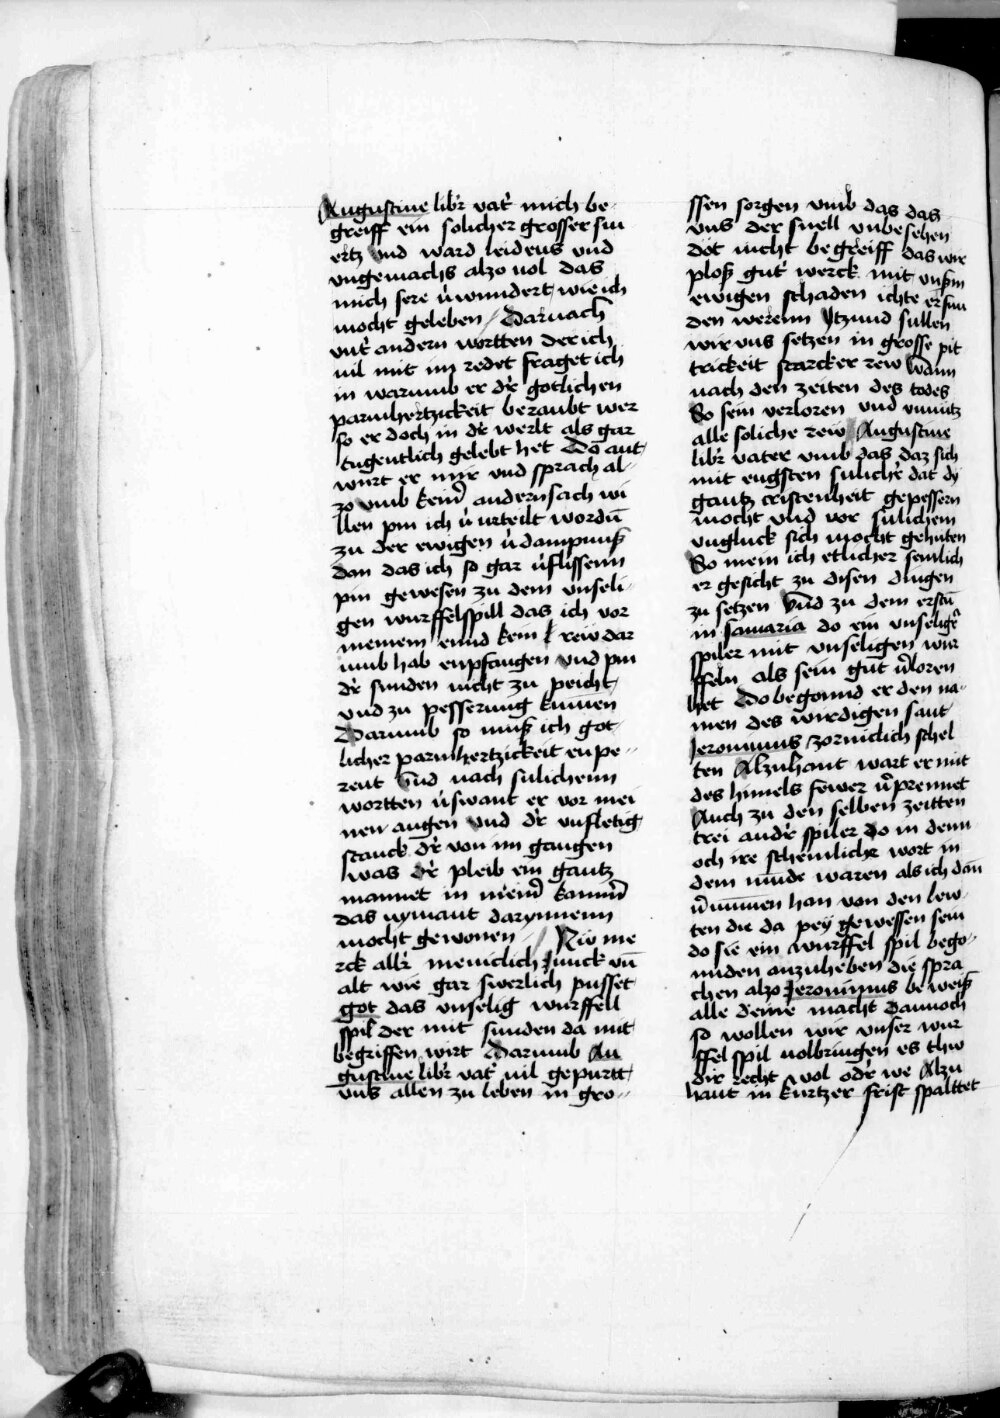 Augustine lib'r vat' mich be-
greiff ein solicher grosser sm
ertz vnd ward leidens vnd
vngemachs alzo uol das
mich sere v'wundert wie ich
mocht geleben / Darnach
vnt' andern wortten der ich
uil mit im redet fraget ich
in warumb er d'r gotlichen
parmhertzickeit beraubt wer
so er doch in d'r werlt als gar
tugentlich gelebt het Do ant-
wurt er mir vnd sprach al-
zo vmb kein' andern sach wi
llen pin ich v'urteilt wordn̄
zu der ewigen v'dampnuß
dan das ich so gar v'flissenn
pin gewesen zu dem vnseli-
gen wurffelspill das ich vor
meinem ennd kein rew dar
umb hab enpfangen vnd pin
d'r sunden nicht zu peicht
vnd zu pesserung kumen
Darumb so muß ich got
licher parmhertzickeit enpe-
rent Vnd nach sulichenn
wortten v'swant er vor mei
nen augen vnd d'r vnfletig
stanck d'r von im gangen
was d'r pleib ein gantz
mannet in mein' kam'r
das nymant darynnenn
mocht gewonen / Nw me
rck all'r meniclich Junck vn̄
alt wie gar swerlich pusset
got das vnselig wurffell
spil der mit sunden da mit
begriffen wirt Darumb Au
gustine lib'r vat' uil gepurtt
vns allen zu leben in gro-
ssen sorgen vmb das das
vns der snell vnbesehen
dot nicht begreiff das wir
ploß gut' werck mit vnß'm
ewigen schaden ichte er fun
den werenn Itzund sullen
wir vns setzen in grosse pit
trickeit starcker rew wann
nach den zeiten des todes
So sein verloren vnd vnnutz
alle soliche rew Augustine
lib'r vater vmb das daz sich
mit engsten sulich'r dat dy
gantz cristenheit gepessern
mocht vnd vor sulichem
vngluck sich mocht gehuten
So mein ich etlicher semlich
er gesicht zu disen dingen
zu setzen Vnd zu dem erstn̄
in Samaria do ein vnselig'r
spiler mit vnseligen wur
ffeln als sein gut v'loren
het Do begonnd er den na-
men des wirdigen sant
Jeronimus zorniclich schel
ten Alzuhant wart er mit
des himels fewer v'prennet
Auch zu den selben zeitten
trei and'r spiler do in denn
och ire schemliche wort in
dem munde waren als ich dan
v'numen han von den lew-
ten die da pey gewessen sein
do sie ein wurffel spil bego-
nnden anzuheben die spra
chen alzo Jeronimus beweiß
alle deine macht dannoch
so wollen wir vnser wur
ffel spil uolbringen es thw
dir recht wol od'r we Alzu
hant in kurtzer frist spalttet